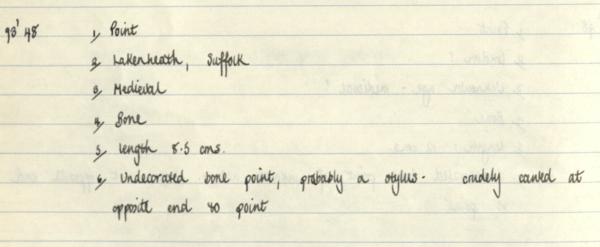 93' 48 1, Point
2, Lakenheath, Suffolk
3, Medieval
4, Bone
5, length 8.5 cms.
6, undecorated bone point, probably a stylus. crudely carved at
opposite end to point